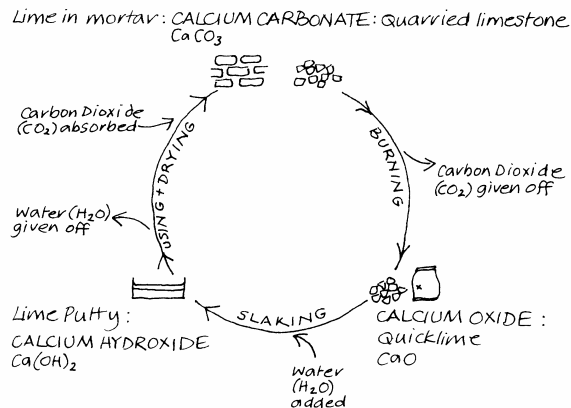 Lime in mortar: CALCIUM CARBONATE: Quarried limestone
CaCO₃
Carbon Dioxide
(CO₂) absorbed
USING + DRYING
BURNING
Carbon Dioxide
(CO₂) given off
Water (H₂O)
given off
Lime Putty:
CALCIUM HYDROXIDE
Ca(OH)₂
SLAKING
CALCIUM OXIDE:
Quicklime
CaO
Water
(H₂O)
added